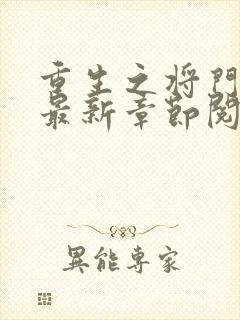 重生之将門
最新章節閱
異能專家